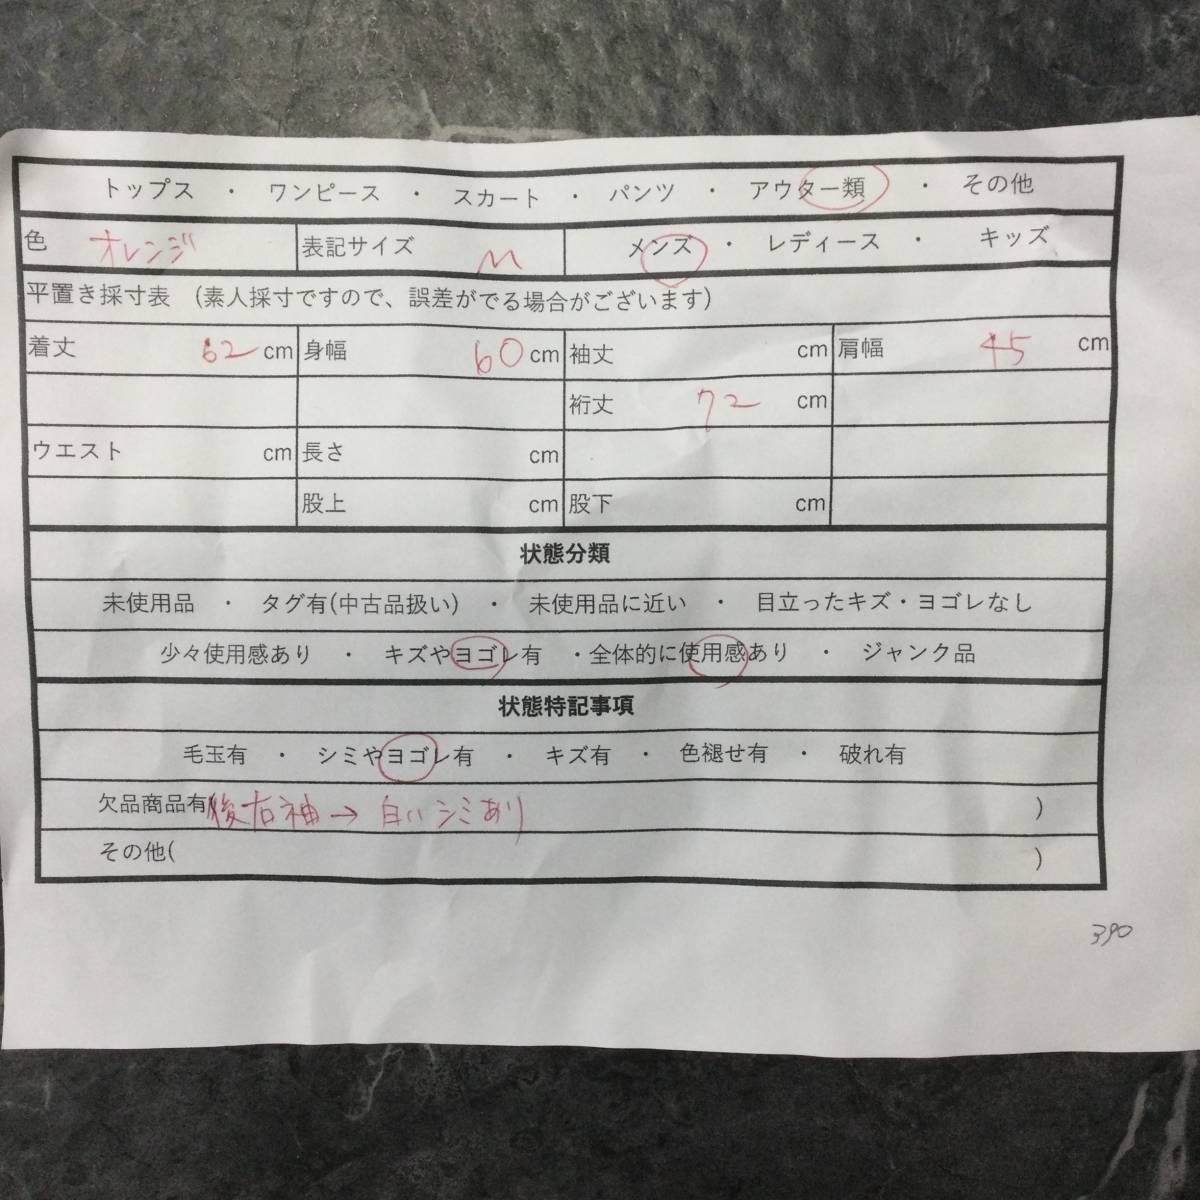 トップス ・ ワンピース ・ スカート ・ パンツ ・ アウター類 ・ その他
色 オレンジ 表記サイズ M メンズ ・ レディース ・ キッズ
平置き採寸表 (素人採寸ですので、誤差がでる場合がございます)
着丈 62 cm 身幅 60 cm 袖丈 cm 肩幅 45 cm
裄丈 72 cm
ウエスト cm 長さ cm
股上 cm 股下 cm
状態分類
未使用品 ・ タグ有(中古品扱い) ・ 未使用品に近い ・ 目立ったキズ・ヨゴレなし
少々使用感あり ・ キズやヨゴレ有 ・全体的に使用感あり ・ ジャンク品
状態特記事項
毛玉有 ・ シミやヨゴレ有 ・ キズ有 ・ 色褪せ有 ・ 破れ有
欠品商品有(後右袖→白いシミあり )
その他( )
390